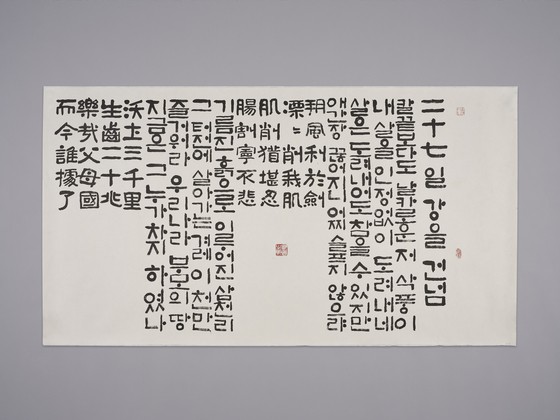 二十七일 강을 건넘
칼끝보다도 날카로운 저 삭풍이
내 살을 인정없이 도려내네
살은 도려내어도 참을 수 있지만
애간장 끊어진 어찌 슬프지 않으랴
朔風利於劍
凓〻削我肌
肌削猶堪忍
腸割寧不悲
기름진 흙으로 이루어진 삼천리
그 터전에 살아가는 겨레 이천만
즐거워라 우리나라 부모의 땅
지금은 그 누가 차지 하였나
沃土三千里
生齒二十兆
樂哉父母國
而今誰據了